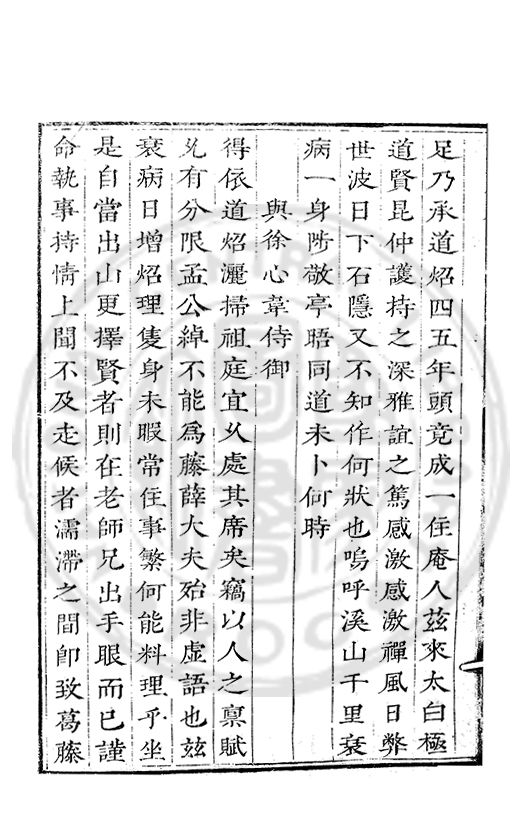 足乃承道炤四五年頭竟成一住庵人茲來太白極
道賢昆仲護持之深雅誼之篤感激感激禪風日弊
世波日下石隱又不知作何狀也嗚呼溪山千里衰
病一身陟敬亭晤同道未卜何時
與徐心韋侍御
得依道炤灑掃祖庭宜乆處其席矣竊以人之禀賦
各有分限孟公綽不能爲藤薛大夫殆非虛語也茲
衰病日增炤理隻身未暇常住事繁何能料理乎坐
是自當出山更擇賢者則在老師兄出手眼而已謹
命執事持情上聞不及走候者濡滯之間卽致葛藤